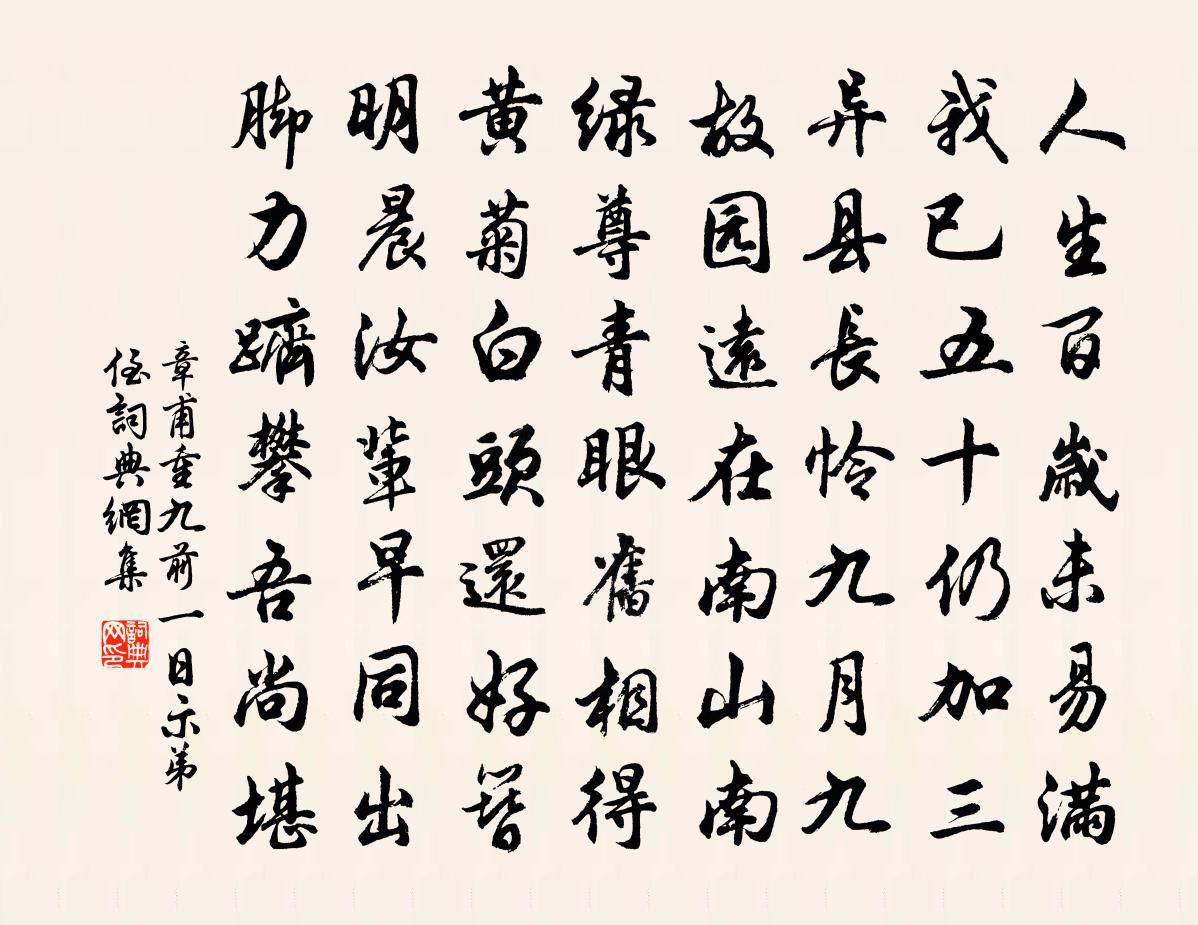 人生百歲未易滿
我已五十仍加三
异县長怜九月九
故园遠在南山南
绿尊青眼舊相得
黄菊白頭還好簪
明晨汝輩早同出
脚力躋攀吾尚堪
章甫重九前一日示弟
侄詞典網集
詞典
网印